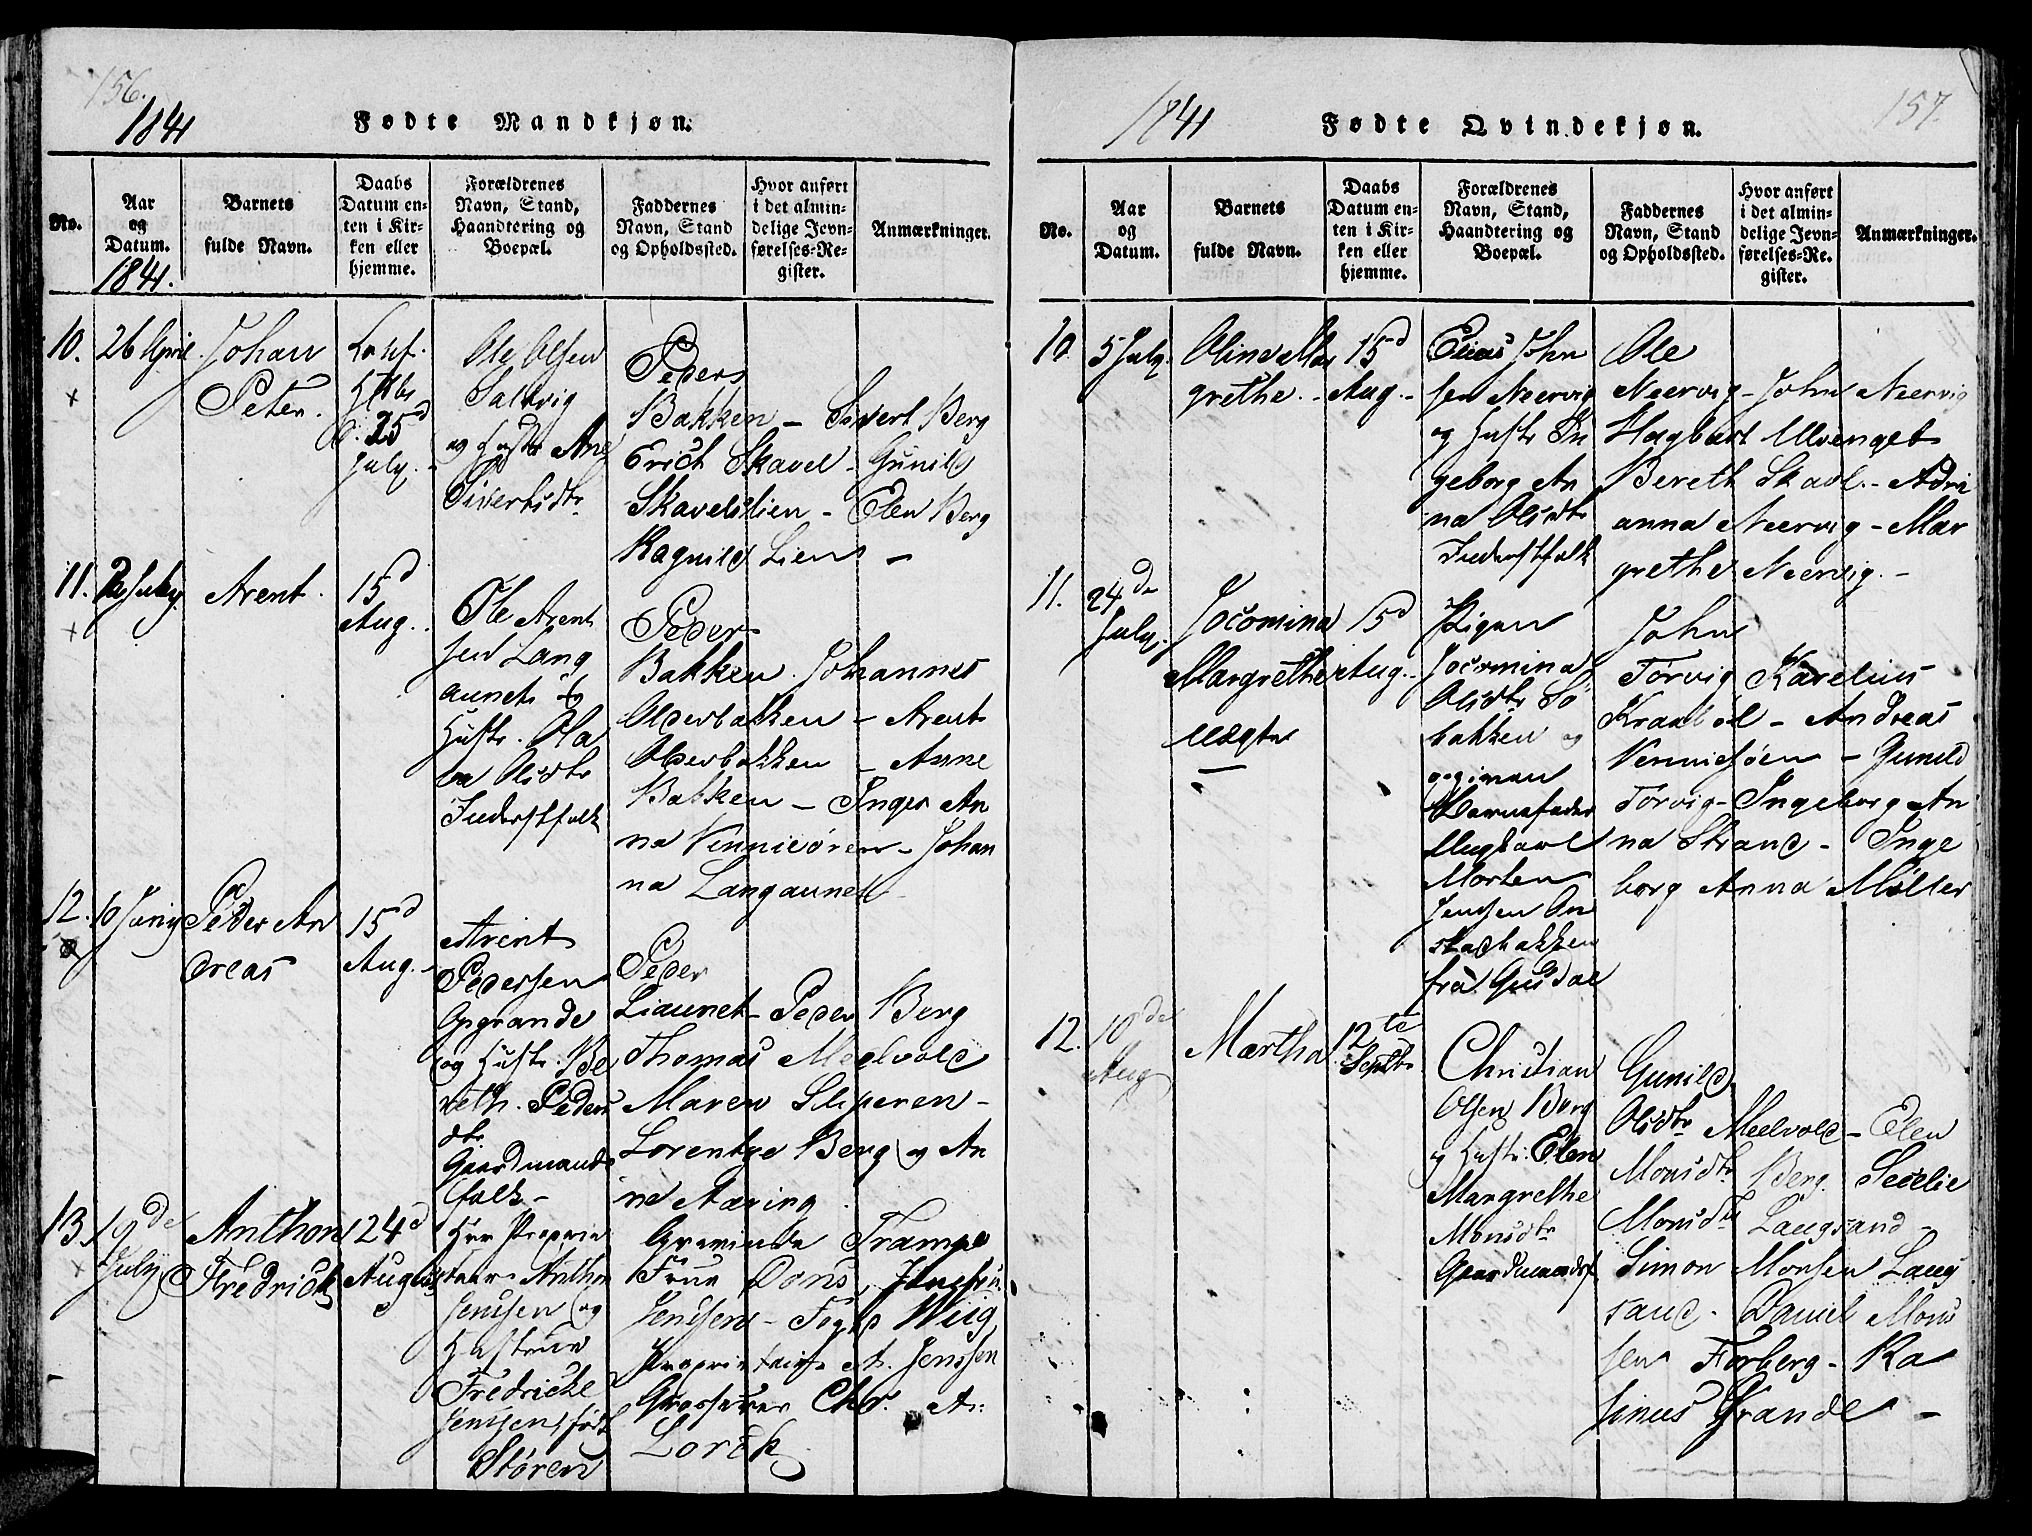 156.
1841
Fødte Mandkjøn.
No.
Aar og Datum.
Barnets fulde Navn.
Daabs Datum enten i Kirken eller hjemme.
Forældrenes Navn, Stand, Haandtering og Boepæl.
Faddernes Navn, Stand og Opholdssted.
Hvor anført i det almindelige Jevnførelses-Register.
Anmærkninger.
1841.
10.
26 April
Johan
Peter.
25d
July.
Ole Olsen
Saltvig
og Hustr Ane
Sivertsdtr
Peder
Bakken - Sivert Berg
Erich Skavel - Gunild
Skavelslien - Elen Berg
Ragnild Lien -
11.
July
Arent.
15d
Aug.
Ole Arent
sen Lang
aunet og
Hustr. Ola
na Olsdtr
Inderstfolk
Peder
Bakken. Johannes
Olderbakken - Arent
Olderbakken - Anne
Bakken - Inger An
na Vennieören - Johan
na Langaunet
12.
10 Juny
Peder An
dreas
15d
Aug.
Arent
Pedersen
Opgrande
og Hustr. Be
reth. Peders
dtr.
Gaardmands
folk -
Peder
Liaunet - Peder Berg
Thomas Meelvold
Maren Sliperen -
Lorentze Berg og An
ne Næring
13.
19de
July
Anthon
Fredrich
24d
August
Hrr Proprie
tair Anthon
Jenssen og
Hustrue
Fredricke
Jenssen, født
Støren
Grevinde Trampe
Frue Doris, Jomfru
Jenssen - Fogd Wiig
Proprietair A. Jenssen
Grosserer Chr. A.
Lorck
1841
Fødte Qvindekjøn.
157.
No.
Aar og Datum.
Barnets fulde Navn.
Daabs Datum enten i Kirken eller hjemme.
Forældrenes Navn, Stand, Haandtering og Boepæl.
Faddernes Navn, Stand og Opholdssted.
Hvor anført i det almindelige Jevnførelses-Register.
Anmærkninger.
10
5 July.
Oline Mar
grethe. -
15d
Aug. -
Elias John
sen Neervig
og Hustr In
geborg An
na Olsdtr
Inderstfolk
Ole
Neervig - John Neervig
Hagbart Ulvenget
Bereth Skavl. - Adri
anna Neervig - Mar
grethe Neervig. -
11.
24de
July.
Jocomina
Margrethe
uægte
15d
Aug.
Pigen
Jocomina
Olsdtr Sö
bakken og
opgiven
Barnefader
Ungkarl
Morten
Jenssen On
stadbakken
fra Gusdal
John
Törvig Karelius
Kraabøl - Andreas
Venniesöen - Gunild
Törvig - Ingeborg An
na Strand - Inge
borg Anna Möller
12.
10de
Aug
Martha
12te
Septbr
Christian
Olsen Berg
og Hustr. Elen
Margrethe
Monsdtr
Gaardmandsf
Gunild
Olsdtr Meelvold - Elen
Monsdtr Berg. Secelie
Monsdtr Langsand -
Simon Monsen Lang
sand - Daniel Mons
sen Forberg - Ra
sinus Grande -